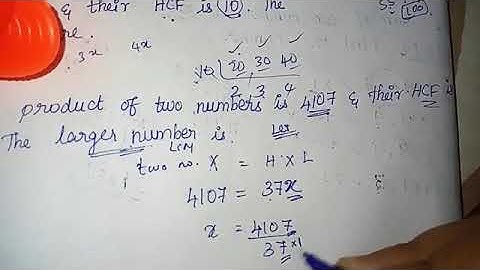 & their HCF is 10. The
are.
3x 4x
10 20 30 40
2, 3, 4
product of two numbers is 4107 & their HCF is
The larger number is. Let
LCM
two no. X = H X L
4107 = 37x
x = 4107
37 x1